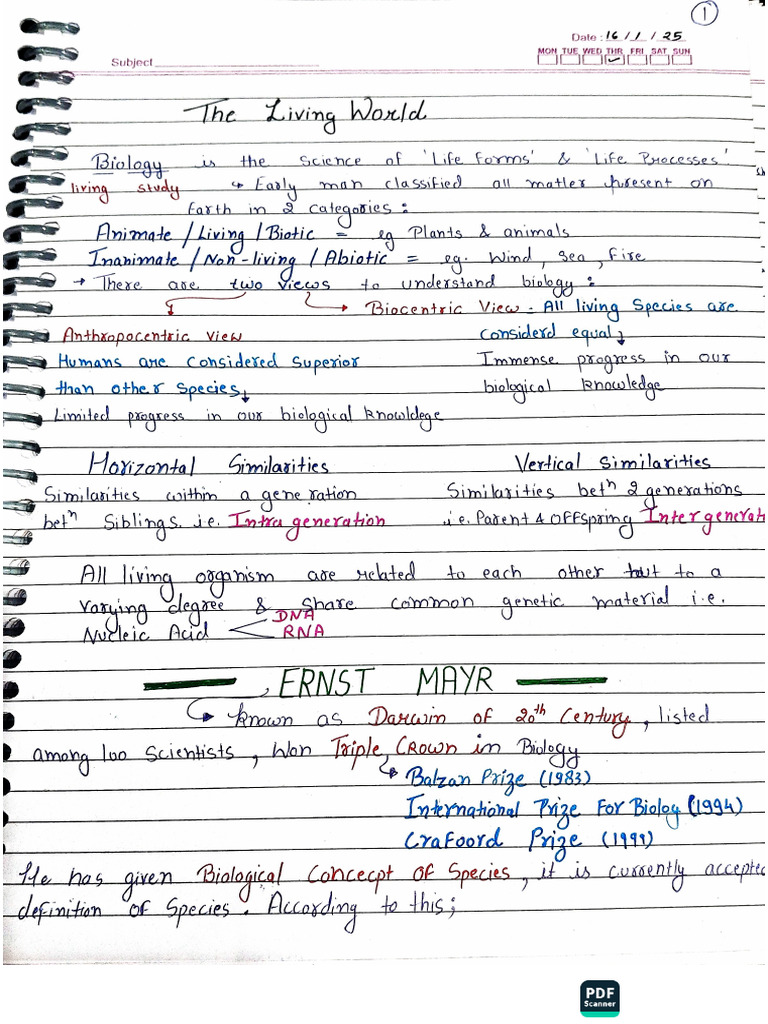 1
Date : 16 / 1 / 25
MON TUE WED THR FRI SAT SUN
Subject
The Living World
Biology is the Science of 'Life Forms' & 'Life Processes'.
living study ↳ Early man classified all matter present on
Earth in 2 categories:
Animate / Living / Biotic = eg Plants & animals
Inanimate / Non-living / Abiotic = eg. Wind, Sea, Fire
→ There are two views to understand biology:
→ Biocentric View - All living Species are
Anthropocentric View
considerd equal↓
Humans are Considered Superior
Immense progress in our
than other Species↓
biological knowledge
Limited progress in our biological knowldege
Horizontal Similarities
Vertical Similarities
Similarities within a generation
Similarities betⁿ 2 generations
betⁿ Siblings. i.e. Intra generation
i.e. Parent & Offspring Inter generat
All living organism are related to each other but to a
Varying degree & Share common genetic material i.e.
DNA
Nucleic Acid
RNA
ERNST MAYR
↳ known as Darwin of 20th Century, listed
among 100 Scientists, Won Triple Crown in Biology
↳ Balzan Prize (1983)
International Prize For Biology (1994)
Crafoord Prize (1999)
He has given Biological Concecpt of Species, it is currently accepted
definition of Species. According to this;
PDF
Scanner